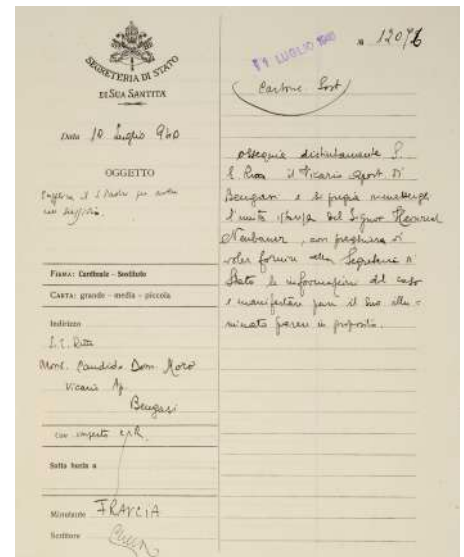 SEGRETERIA DI STATO
DI SUA SANTITÀ
Data 10 Luglio 940
OGGETTO
Supplica il S. Padre per
un sussidio.
FIRMA: Cardinale - Sostituto
CARTA: grande - media - piccola
Indirizzo
S. E. Rma
Mons. Candido Dom. Moro
Vicario Ap.
Bengasi
con inserto
Sotto busta a
Minutante FRANCIA
Scrittore
11 LUGLIO 1940
N. 12071
ossequia distintamente S.
E. Rma il Vicario Apost. di
Bengasi e si pregia rimettergli
l'unita istanza del Signor Heinrich
Neubauer, con preghiera di
voler fornire alla Segreteria di
Stato le informazioni del caso
e manifestare pure il Suo illu-
minato parere in proposito.